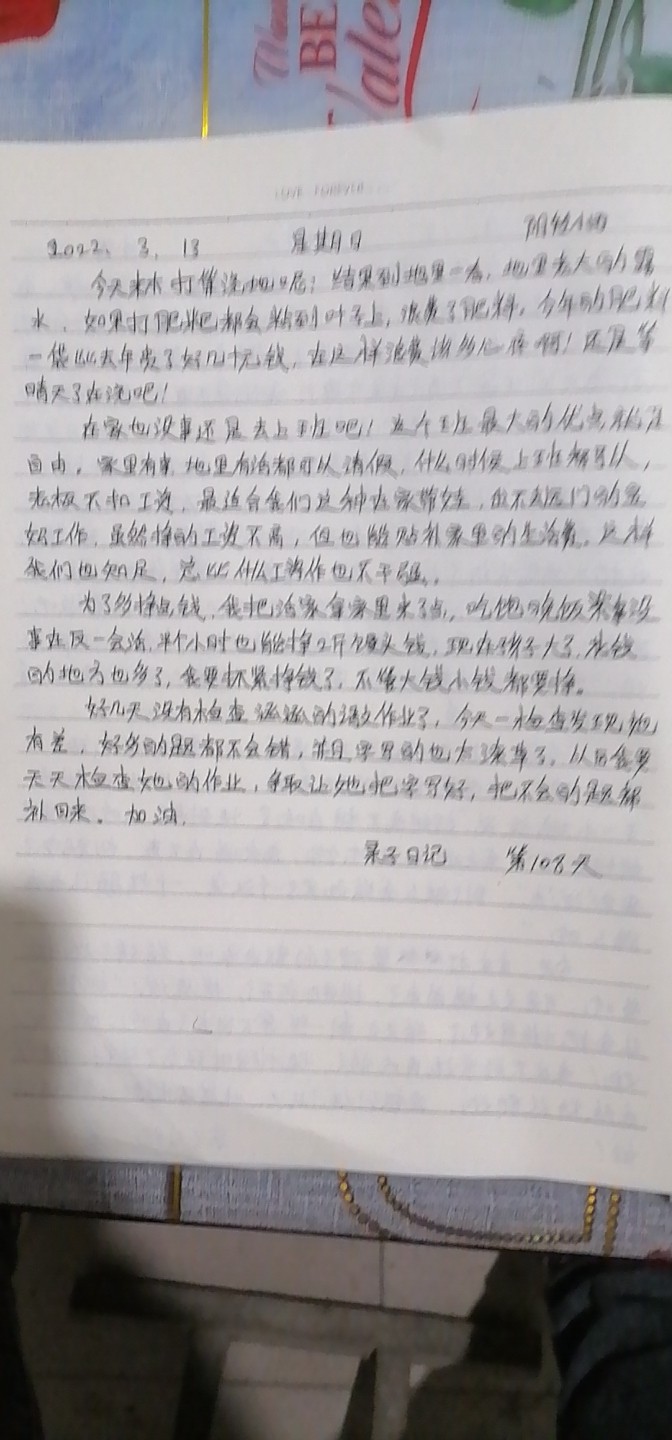 BE
Vale
LOVE FOREVER
2022. 3. 13 星期日 阴转小雨
今天本打算浇地呢！结果到地里一看，地里老大的露
水，如果打肥料都会粘到叶子上，浪费了肥料，今年的肥料
一袋比去年贵了好几十元钱，在这样浪费该多心疼啊！还是等
晴天了在浇吧！
在家也没事还是去上班吧！这个班最大的优点就是
自由，家里有事地里有活都可以请假，什么时侯上班都可以，
老板不扣工资，最适合我们这种在家带娃，出不去远门的宝
妈工作，虽然挣的工资不高，但也能贴补家里的生活费，这样
我们也知足，总比什么工作也不干强。
为了多挣点钱，我把活家拿家里来了点，吃饱晚饭没
事在反一会活，半个小时也能挣2斤馒头钱，现在孩子大了，花钱
的地方也多了，我要抓紧挣钱了，不管大钱小钱都要挣。
好几天没有检查涵涵的语文作业了，今天一检查发现她
有差，好多的题都不会错，并且字写的也太潦草了，从后我要
天天检查她的作业，争取让她把字写好，把不会的题都
补回来。加油.
日记 第108天